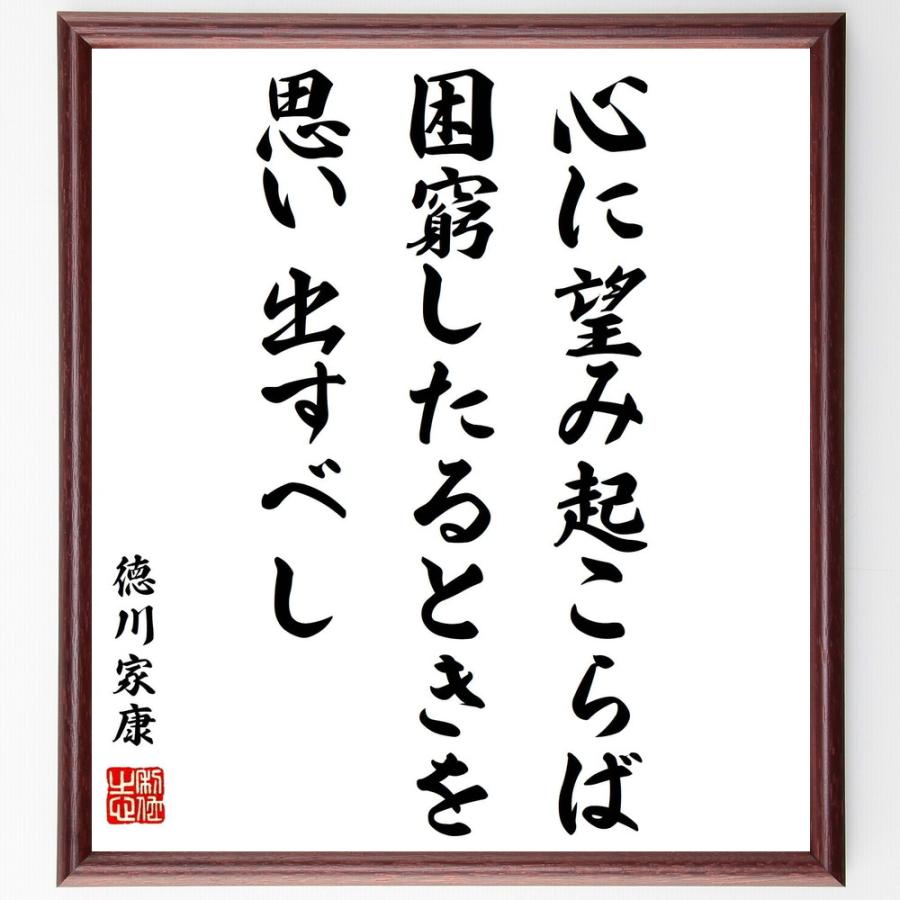 心に望み起こらば
困窮したるときを
思い出すべし
徳川家康